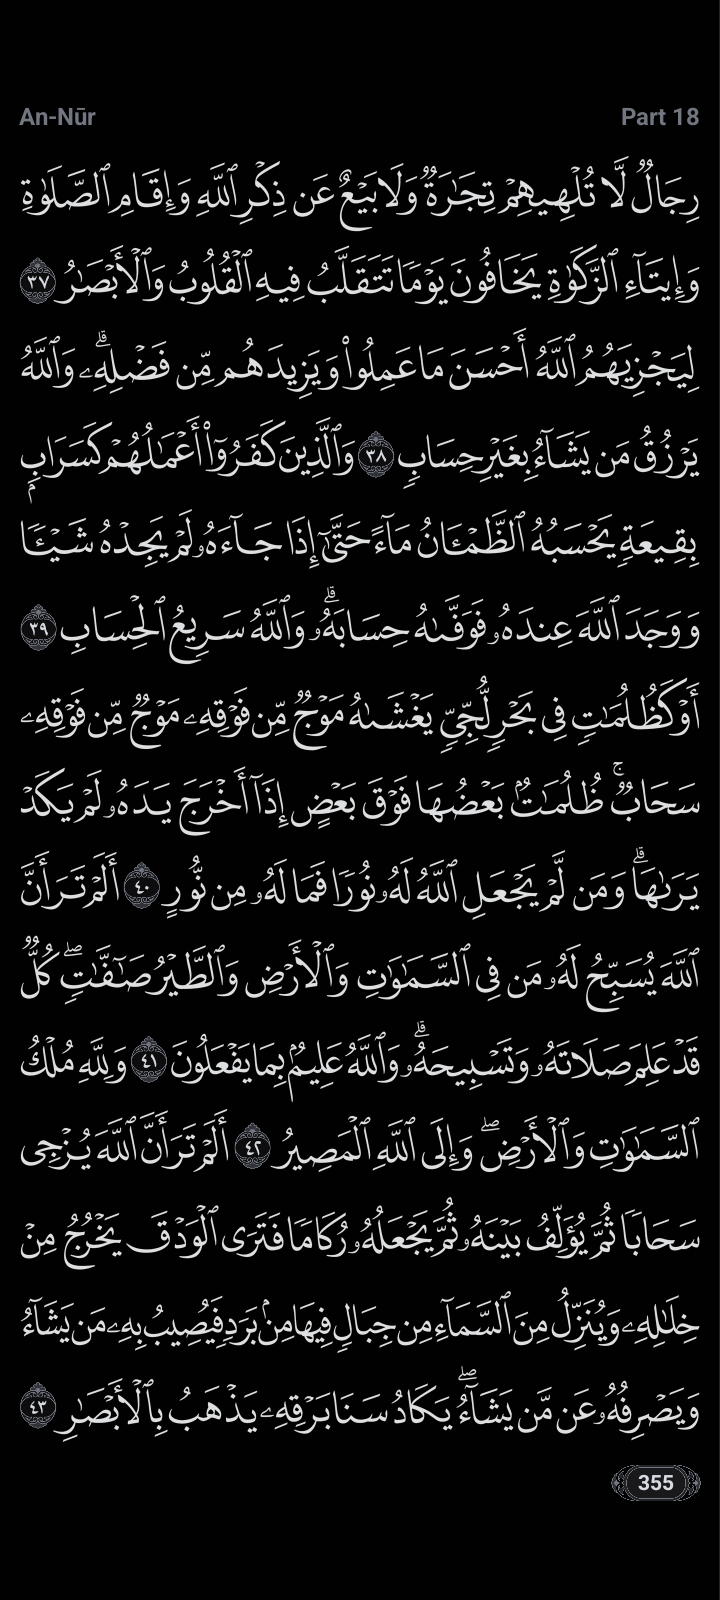 An-Nūr Part 18
رِجَالٌ لَّا تُلْهِيهِمْ تِجَٰرَةٌ وَلَا بَيْعٌ عَن ذِكْرِ ٱللَّهِ وَإِقَامِ ٱلصَّلَوٰةِ
وَإِيتَآءِ ٱلزَّكَوٰةِ يَخَافُونَ يَوْمًا تَتَقَلَّبُ فِيهِ ٱلْقُلُوبُ وَٱلْأَبْصَٰرُ ٣٧
لِيَجْزِيَهُمُ ٱللَّهُ أَحْسَنَ مَا عَمِلُوا۟ وَيَزِيدَهُم مِّن فَضْلِهِۦۗ وَٱللَّهُ
يَرْزُقُ مَن يَشَآءُ بِغَيْرِ حِسَابٍ ٣٨ وَٱلَّذِينَ كَفَرُوٓا۟ أَعْمَٰلُهُمْ كَسَرَابٍۭ
بِقِيعَةٍ يَحْسَبُهُ ٱلظَّمْـَٔانُ مَآءً حَتَّىٰٓ إِذَا جَآءَهُۥ لَمْ يَجِدْهُ شَيْـًٔا
وَوَجَدَ ٱللَّهَ عِندَهُۥ فَوَفَّىٰهُ حِسَابَهُۥۗ وَٱللَّهُ سَرِيعُ ٱلْحِسَابِ ٣٩
أَوْ كَظُلُمَٰتٍ فِى بَحْرٍ لُّجِّىٍّ يَغْشَىٰهُ مَوْجٌ مِّن فَوْقِهِۦ مَوْجٌ مِّن فَوْقِهِۦ
سَحَابٌۚ ظُلُمَٰتٌۢ بَعْضُهَا فَوْقَ بَعْضٍ إِذَآ أَخْرَجَ يَدَهُۥ لَمْ يَكَدْ
يَرَىٰهَاۗ وَمَن لَّمْ يَجْعَلِ ٱللَّهُ لَهُۥ نُورًا فَمَا لَهُۥ مِن نُّورٍ ٤٠ أَلَمْ تَرَ أَنَّ
ٱللَّهَ يُسَبِّحُ لَهُۥ مَن فِى ٱلسَّمَٰوَٰتِ وَٱلْأَرْضِ وَٱلطَّيْرُ صَٰٓفَّٰتٍۖ كُلٌّ
قَدْ عَلِمَ صَلَاتَهُۥ وَتَسْبِيحَهُۥۗ وَٱللَّهُ عَلِيمٌۢ بِمَا يَفْعَلُونَ ٤١ وَلِلَّهِ مُلْكُ
ٱلسَّمَٰوَٰتِ وَٱلْأَرْضِۖ وَإِلَى ٱللَّهِ ٱلْمَصِيرُ ٤٢ أَلَمْ تَرَ أَنَّ ٱللَّهَ يُزْجِى
سَحَابًا ثُمَّ يُؤَلِّفُ بَيْنَهُۥ ثُمَّ يَجْعَلُهُۥ رُكَامًا فَتَرَى ٱلْوَدْقَ يَخْرُجُ مِنْ
خِلَٰلِهِۦ وَيُنَزِّلُ مِنَ ٱلسَّمَآءِ مِن جِبَالٍ فِيهَا مِنۢ بَرَدٍ فَيُصِيبُ بِهِۦ مَن يَشَآءُ
وَيَصْرِفُهُۥ عَن مَّن يَشَآءُۖ يَكَادُ سَنَا بَرْقِهِۦ يَذْهَبُ بِٱلْأَبْصَٰرِ ٤٣
355